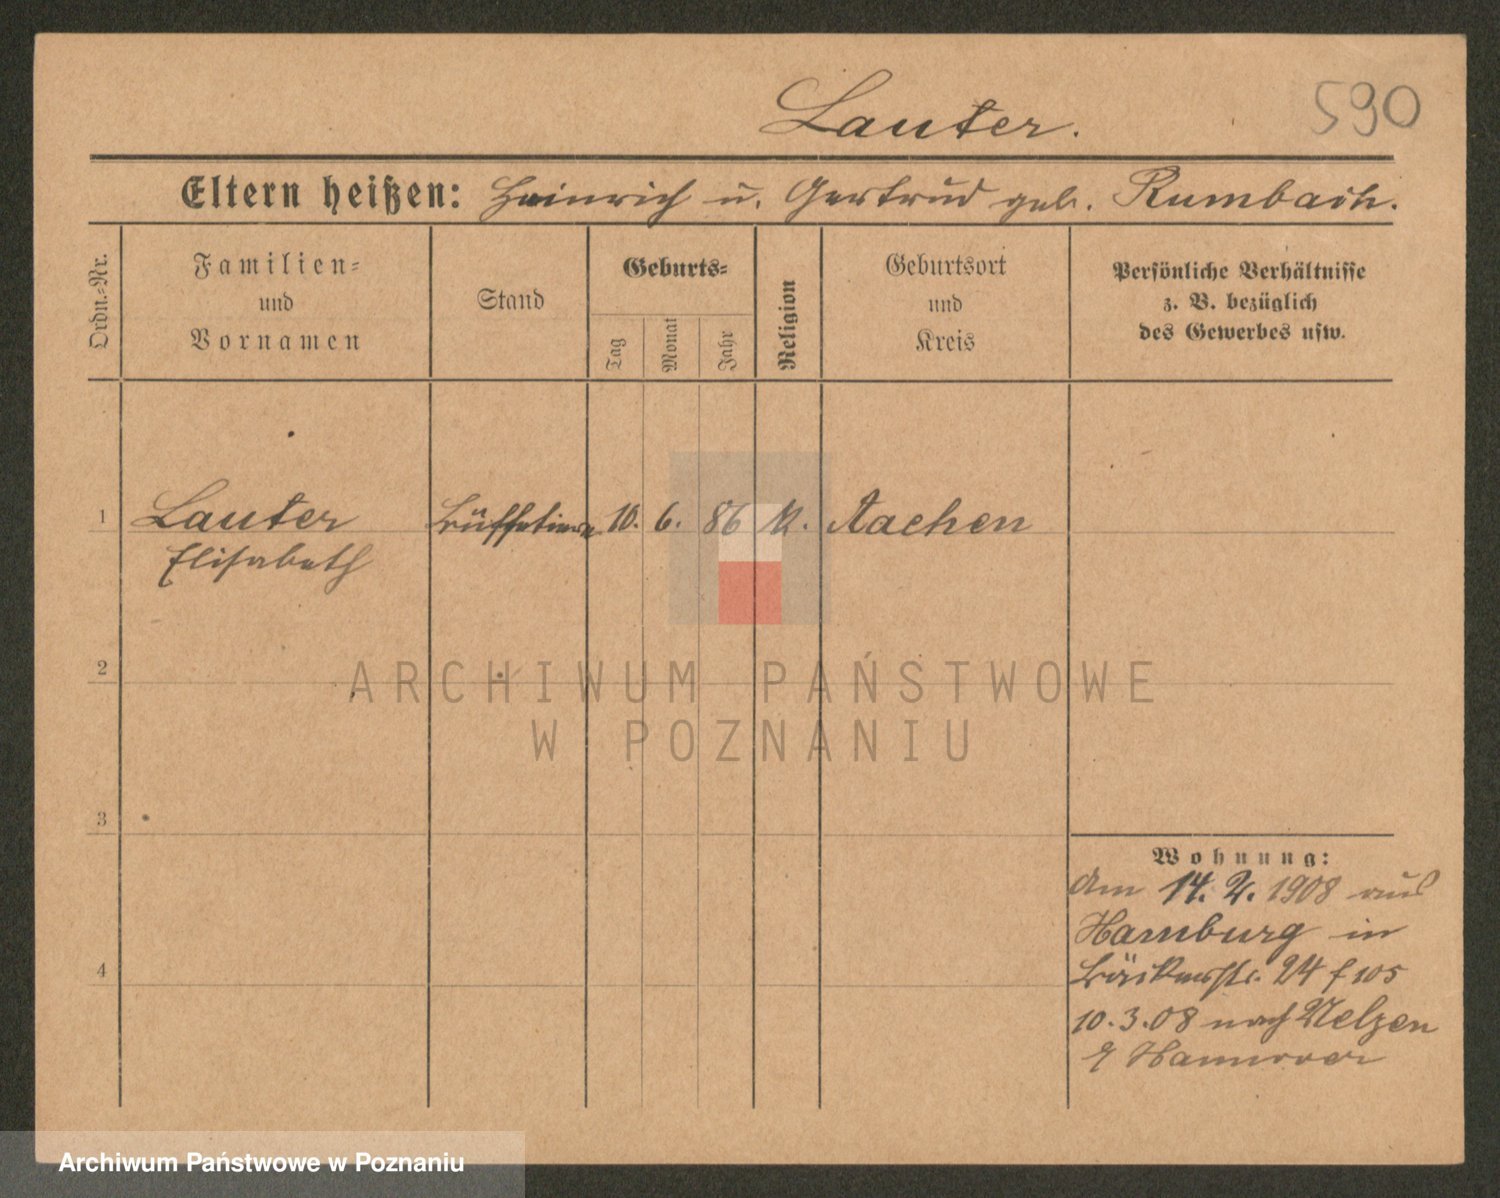 Lauter.
590
Eltern heißen: Heinrich u. Gertrud geb. Rumbach.
Ordn.=Nr.
Familien=
und
Vornamen
Stand
Geburts=
Tag
Monat
Jahr
Religion
Geburtsort
und
Kreis
Persönliche Verhältnisse
z. B. bezüglich
des Gewerbes usw.
1 Lauter Büffetiere 10. 6. 86 k. Aachen
Elisabeth
2
3
4
Wohnung:
Am 14. 2. 1908 aus
Hamburg in
Bäckerstr. 24 f 105
10.3.08 nach Uelzen
Hannover
ARCHIWUM PAŃSTWOWE
W POZNANIU
Archiwum Państwowe w Poznaniu